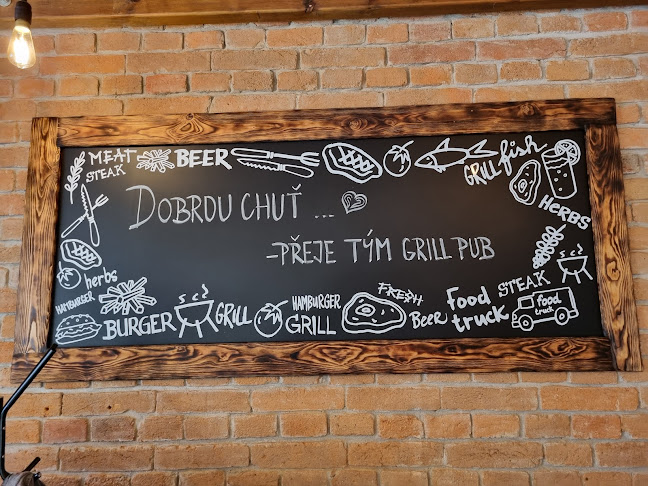 MEAT
STEAK
BEER
GRILL fish
HERBS
DOBROU CHUŤ ...
-PŘEJE TÝM GRILL PUB
herbs
HAMBURGER
BURGER
GRILL
HAMBURGER
GRILL
FRESH
Beer
food
truck
STEAK
food
truck